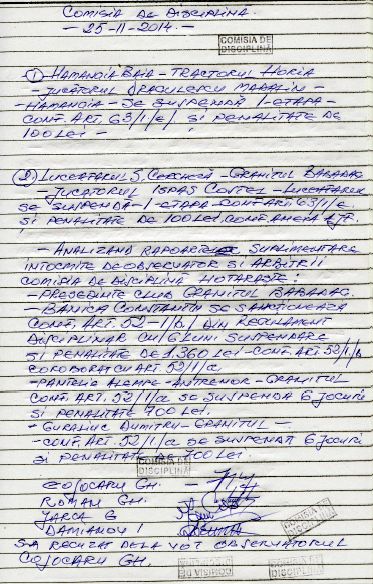 COMISIA DE DISCIPLINA
- 25-11-2014. -
COMISIA DE
DISCIPLINĂ
1 HAMANGIA BAIA - TRACTORUL HORIA
- JUCATORUL DRAGULESCU MADALIN -
- HAMANGIA - SE SUSPENDĂ 1 - ETAPA -
CONF. ART. 63/1/e/ SI PENALITATE DE
100 LEI -
2 LUCEAFARUL S. CERCHEZĂ - GRANITUL BABADAG
- JUCATORUL ISPAS COSTEL - LUCEAFARUL
SE SUSPENDĂ - 1 - ETAPA - CONF. ART. 63/1/e
SI PENALITATE DE 100 LEI. CONF. ANEXA
- ANALIZAND RAPOARTELE SUPLIMENTARE
INTOCMITE DE OBSERVATOR SI ARBITRII
COMISIA DE DISCIPLINĂ HOTARAȘTE:
- PRESEDINTE CLUB GRANITUL BABADAG
- BANICA CONSTANTIN SE SANCTIONEAZA
CONF. ART. 52-1/b/ DIN REGULAMENT
DISCIPLINAR CU 6 LUNI SUSPENDARE
SI PENALITATE DE 1.360 LEI - CONF. ART. 52/1/b
COROBORAT CU ART. 52/1/a.
- PANTELIE - ANTRENOR - GRANITUL
CONF. ART. 52/1/a SE SUSPENDA 6 JOCURI
SI PENALITATE 700 LEI.
- DUMITRU - GRANITUL -
- CONF. ART. 52/1/a SE SUSPENDĂ 6 JOCURI
SI PENALITATE DE 700 LEI.
COMISIA DE
DISCIPLINĂ
COJOCARU GH. -
ROMAN GH.
IARCA G
DAMIANOV I
S-A RECUZAT DE LA VOT OBSERVATORUL
COJOCARU GH.
COMISIA DE
DISCIPLINĂ